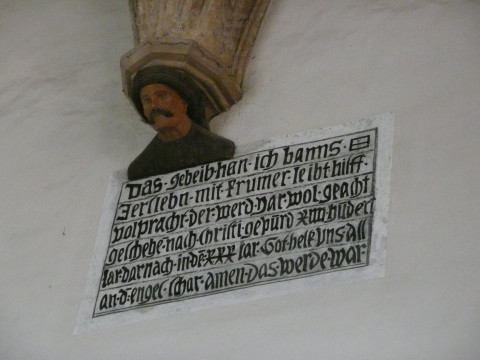 Das · gebeib · han · ich hanns ·
Jerslebn · mit frumer · leibt · hilff ·
volpracht · der · werd · dar · wol · geacht
geschehe · nach · christi · gepurd xvᶜ
iar · darnach · in dē · xxx iar · Got · helf uns · all
an · d · engel · schar · amen · das · werde · war ·